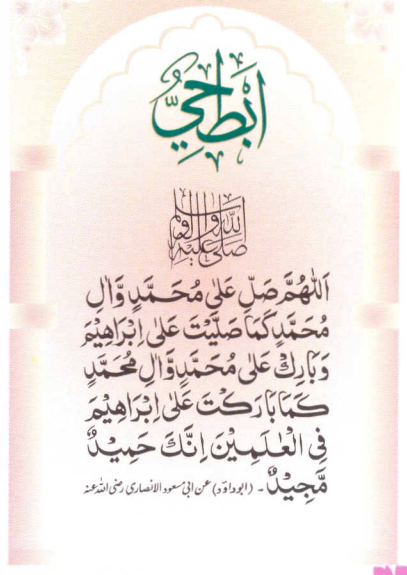 اَبْطَحِيٌّ
صَلَّى اللّٰهُ عَلَيْهِ وَاٰلِهٖ وَسَلَّمَ
اَللّٰهُمَّ صَلِّ عَلٰى مُحَمَّدٍ وَّاٰلِ
مُحَمَّدٍ كَمَا صَلَّيْتَ عَلٰى اِبْرَاهِيْمَ
وَبَارِكْ عَلٰى مُحَمَّدٍ وَّاٰلِ مُحَمَّدٍ
كَمَا بَارَكْتَ عَلٰى اِبْرَاهِيْمَ
فِى الْعٰلَمِيْنَ اِنَّكَ حَمِيْدٌ
مَّجِيْدٌ۔ (ابوداؤد) عن ابی مسعود الانصاری رضی اللہ عنہ